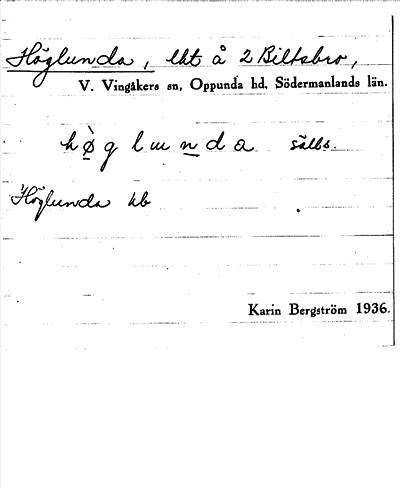 Höglunda, lht å 2 Biltsbro,
V. Vingåkers sn, Oppunda hd, Södermanlands län.
hø̀g lunda sälls.
Höglunda hb
Karin Bergström 1936.